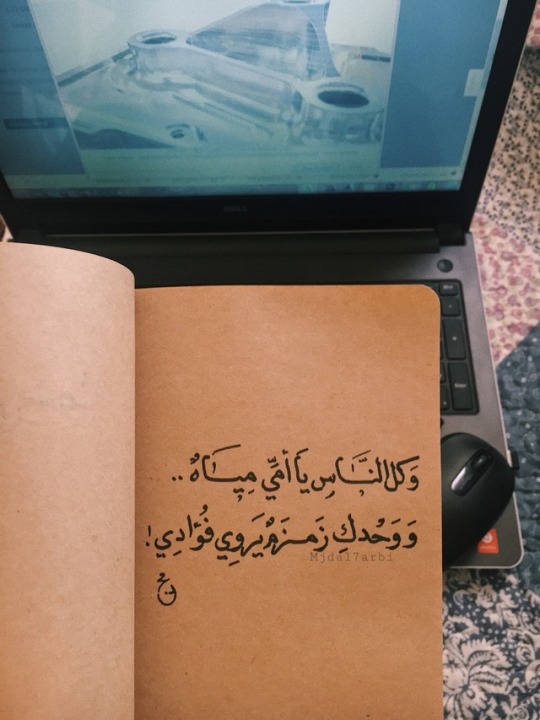 وَكل النَّاسِ يَا أمِّي مِيَاهٌ ..
وَوَحْدكِ زَمزَمٌ يَروِي فُؤَادِي !
Mjdal7arbi
DELL